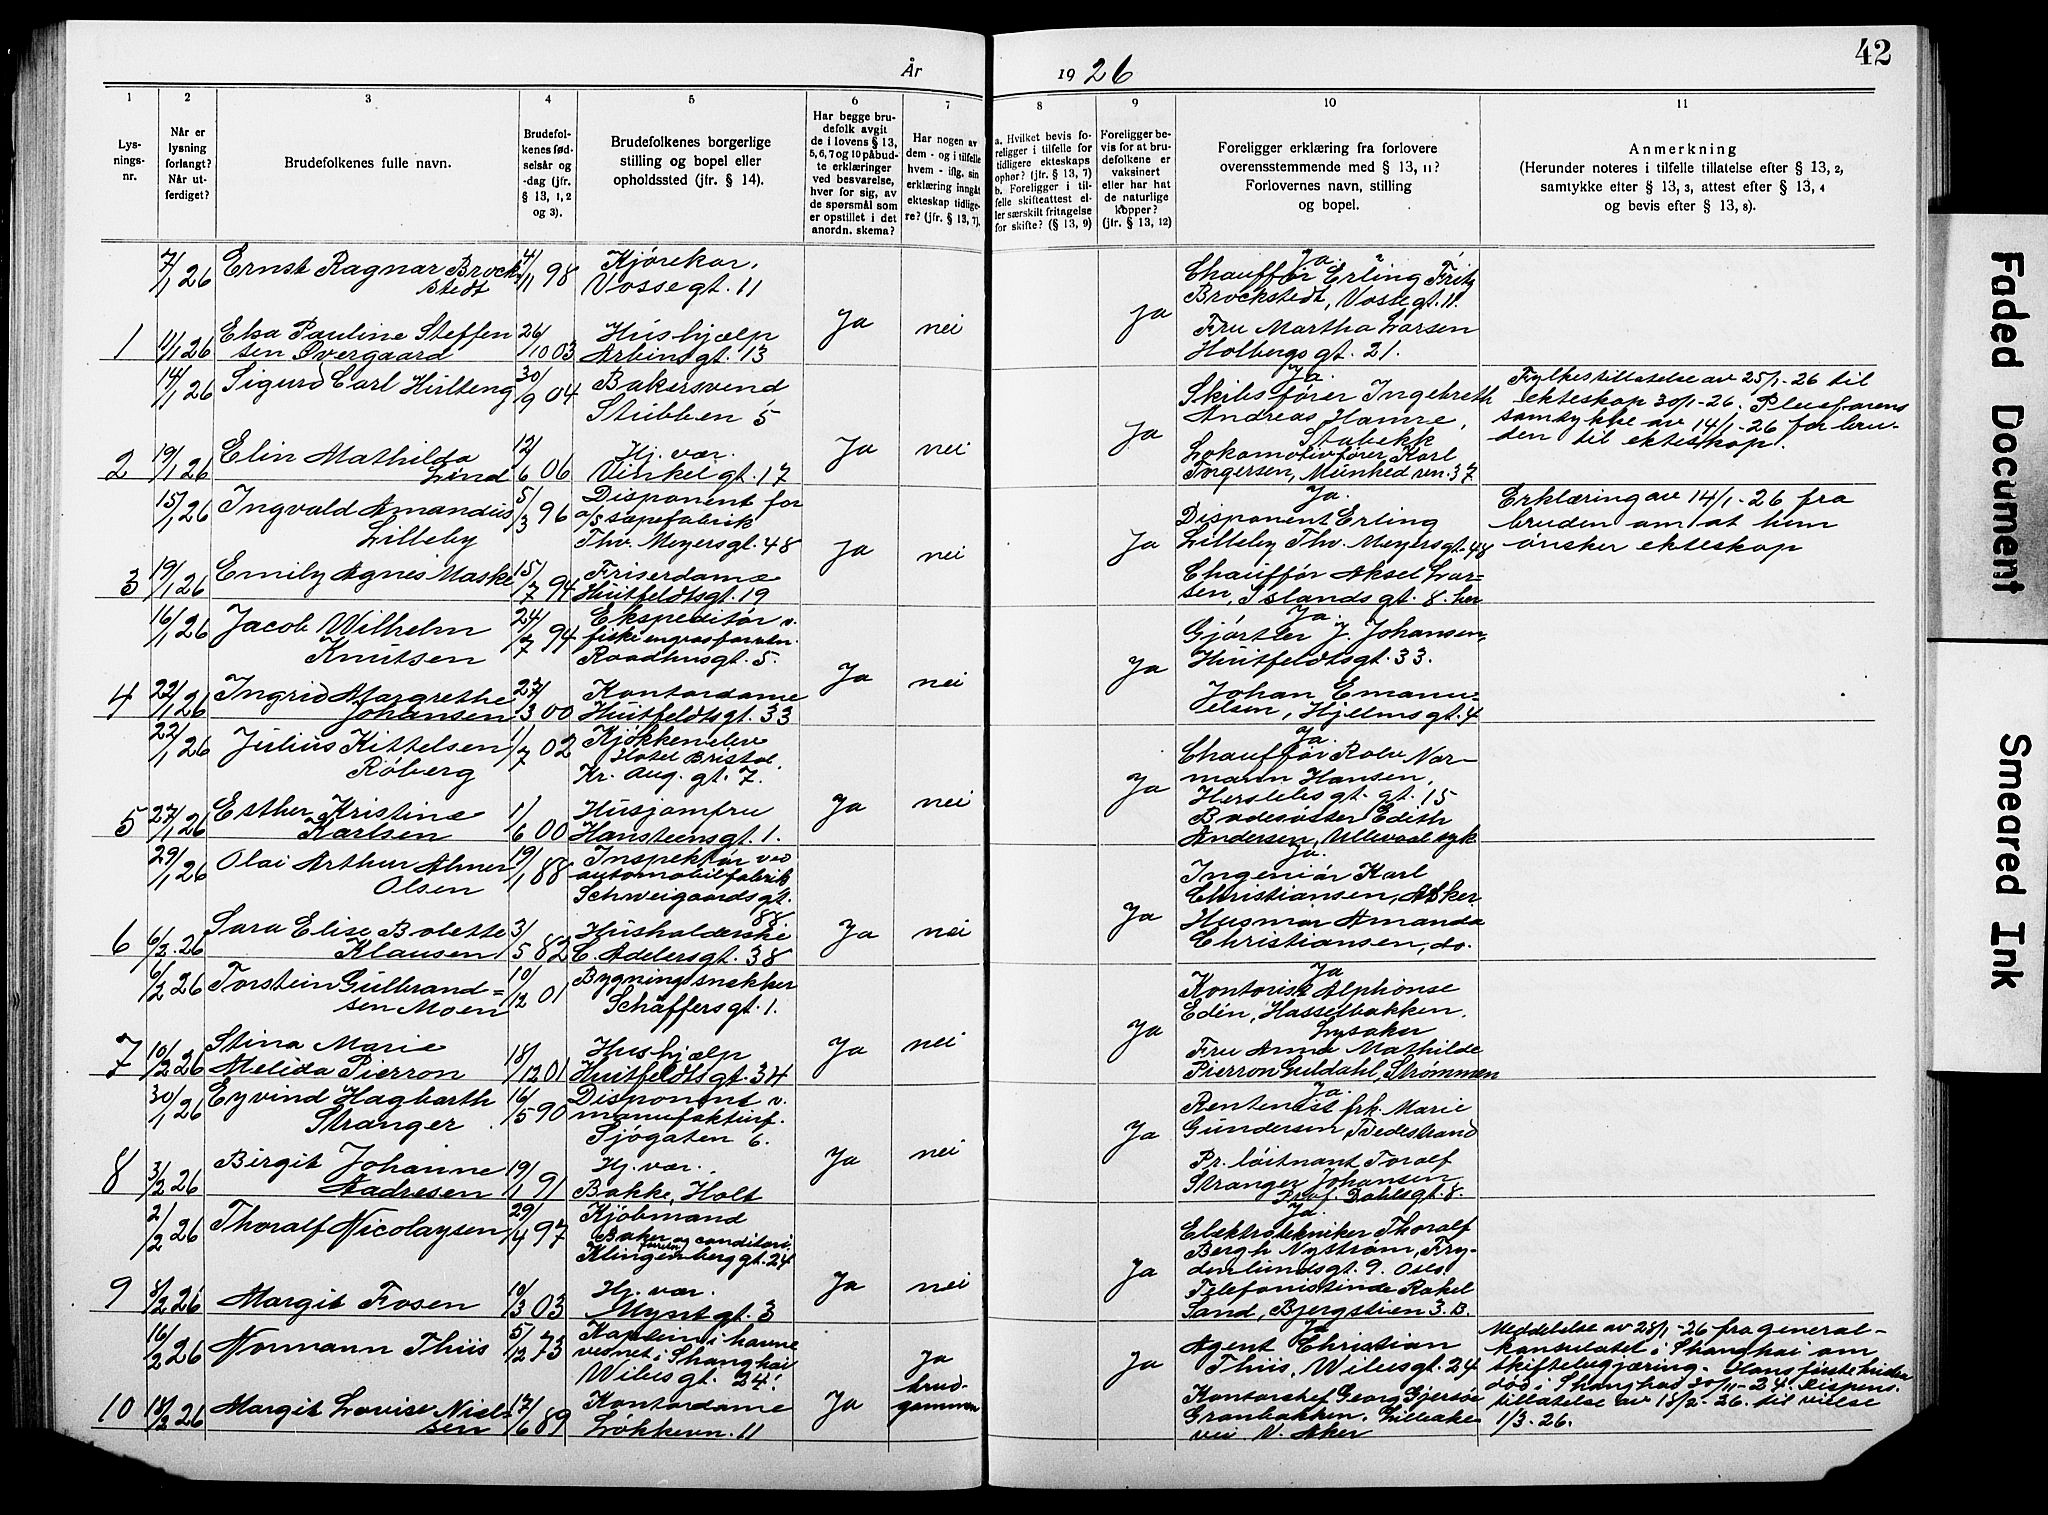 År
19 26
42
1
2
3
4
5
6
7
8
9
10
11
Lys-
nings-
nr.
Når er
lysning
forlangt?
Når ut-
ferdiget?
Brudefolkenes fulle navn.
Brudefol-
kenes fød-
selsår og
-dag (jfr.
§ 13, 1, 2
og 3).
Brudefolkenes borgerlige
stilling og bopel eller
opholdssted (jfr. § 14).
Har begge bru-
defolk avgit
de i lovens § 13,
5, 6, 7 og 10 påbud-
te erklæringer
ved besvarelse,
hver for sig, av
de spørsmål som
er opstillet i det
anordn. skema?
Har nogen av
dem - og i tilfelle
hvem - iflg. sin
erklæring inngåt
ekteskap tidlige-
re? (jfr. § 13, 7).
a. Hvilket bevis fo-
religger i tilfelle for
tidligere ekteskaps
ophør? (jfr. § 13, 7)
b. Foreligger i til-
felle skifteattest el-
ler særskilt fritagelse
for skifte? (§ 13, 9)
Foreligger be-
vis for at bru-
defolkene er
vaksinert
eller har hat
de naturlige
kopper?
(jfr. § 13, 12)
Foreligger erklæring fra forlovere
overensstemmende med § 13, 11?
Forlovernes navn, stilling
og bopel.
Anmerkning
(Herunder noteres i tilfelle tillatelse efter § 13, 2,
samtykke efter § 13, 3, attest efter § 13, 4
og bevis efter § 13, 8).
7/1 26 Ernst Ragnar Brock-
stedt
4/11 98
Kjørekar,
Vossegt. 11
1
11/1 26 Elsa Pauline Steffen
sen Øvergaard
26/10 03
Hushjælp
Arbinsgt. 13
Ja nei Ja
Ja.
Chauffør Erling Fritz
Brockstedt, Vossegt. 11.
Fru Martha Larsen
Holbergs gt. 21.
14/1 26 Sigurd Carl Hulteng
30/9 04
Bakersvend
Stubben 5
2
19/1 26 Elin Mathilda
Lind
12/6 06
Hj. vær.
Vinkelgt. 17
Ja nei Ja
Ja.
Skibsfører Ingebreth
Andreas Hamre,
Stabekk
Lokomotivfører Karl
Torgersen, Munkedamsv. 37
Fylkestillatelse av 25/1-26 til
ekteskap 30/1-26. Pleiefarens
samtykke av 14/1-26 for bru-
den til ekteskap.
15/1 26 Ingvald Amandus
Lilleby
5/3 96
Disponent for
a/s sæpefabrik
Thv. Meyersgt. 48
3
19/1 26 Emily Agnes Maske
15/7 94
Friserdame
Huitfeldtsgt. 19
Ja nei Ja
Ja.
Disponent Erling
Lilleby Thv. Meyersgt. 48
Chauffør Aksel Lar-
sen, Islands gt. 8. her
Erklæring av 14/1-26 fra
bruden om at hun
ønsker ekteskap
16/1 26 Jacob Wilhelm
Knutsen
24/7 94
Ekspeditør v.
fiske engrosforretn.
Raadhusgt. 5.
4
22/1 26 Ingrid Margrethe
Johansen
27/3 00
Kontordame
Huitfeldtsgt. 33
Ja nei Ja
Ja.
Gjørtler J. Johansen,
Huitfeldtsgt. 33.
Johan Emanu-
elsen, Hjelmsgt. 4
22/1 26 Julius Kittelsen
Røberg
1/7 02
Kjøkkenelev
Hotel Bristol.
Kr. Aug. gt. 7.
5
27/1 26 Esther Kristine
Karlsen
1/6 00
Husjomfru
Hansteensgt. 1.
Ja nei Ja
Ja.
Chauffør Rolv Nor-
mann Hansen,
Herslebsgt. gt. 15
Badesøster Edith
Andersen, Ullevaal syk
29/1 26 Olai Arthur Almer
Olsen
19/1 88
Inspektør ved
automobilfabrik
Schweigaardsgt.
88
6
6/2 26 Sara Elise Bolette
Klausen
3/5 82
Husholderske
C. Adelersgt. 38
Ja nei Ja
Ja.
Ingeniør Karl
Christiansen, Asker
Husmor Amanda
Christiansen, do.
6/2 26 Torstein Gulbrand=
sen Moen
10/12 01
Bygningssnekker
Schäffersgt. 1.
7
10/2 26 Stina Marie
Melida Pierron
18/12 01
Hushjælp
Huitfeldtsgt. 34
Ja nei Ja
Ja
Kontorist Alphonse
Edén, Hasselbakken,
Lysaker
Fru Anna Mathilde
Pierron Guldahl, Strømmen
30/1 26 Eyvind Hagbarth
Stranger
16/5 90
Disponent v.
manufakturf.
Sjøgaten 6.
8
3/2 26 Birgit Johanne
Aadnesen
19/1 91
Hj. vær.
Bakke, Holt
Ja nei Ja
Ja.
Rentenist frk. Marie
Gundersen, Tvedestrand
Pr. løitnant Toralf
Stranger Johansen,
Prof. Dahlsgt. 8.
2/2 26 Thoralf Nicolaysen
29/4 97
Kjøbmand
Baker og conditori
forretn
Klingenberggt. 24
9
8/2 26 Margit Fosen
10/3 03
Hj. vær.
Myntgt. 3
Ja nei Ja
Ja.
Elektrotekniker Thoralf
Bergh Nystrøm, Fry-
denlundsgt. 9. Oslo.
Telefonistinde Rakel
Sand, Bjergstien 3. B.
16/2 26 Normann Thiis
5/12 73
Kaptein i havne
vesnet i Shanghai
Wilses gt. 24.
10
18/2 26 Margit Lovise Niel-
sen
17/6 89
Kontordame
Løkkevn. 11
Ja
Ja
brud-
gommen
Ja
Ja
Agent Christian
Thiis, Wilsesgt. 24
Kontorchef Georg Gjersøe
Granbakken, Lilleake
vei V. Aker
Meddelelse av 28/1-26 fra general-
konsulatet i Shanghai om
skiftebegjæring. Hans første hustru
død i Shanghai 30/11-24. Dispens.
tillatelse av 15/2-26. til vielse
1/3-26.
Faded Document
Smeared Ink